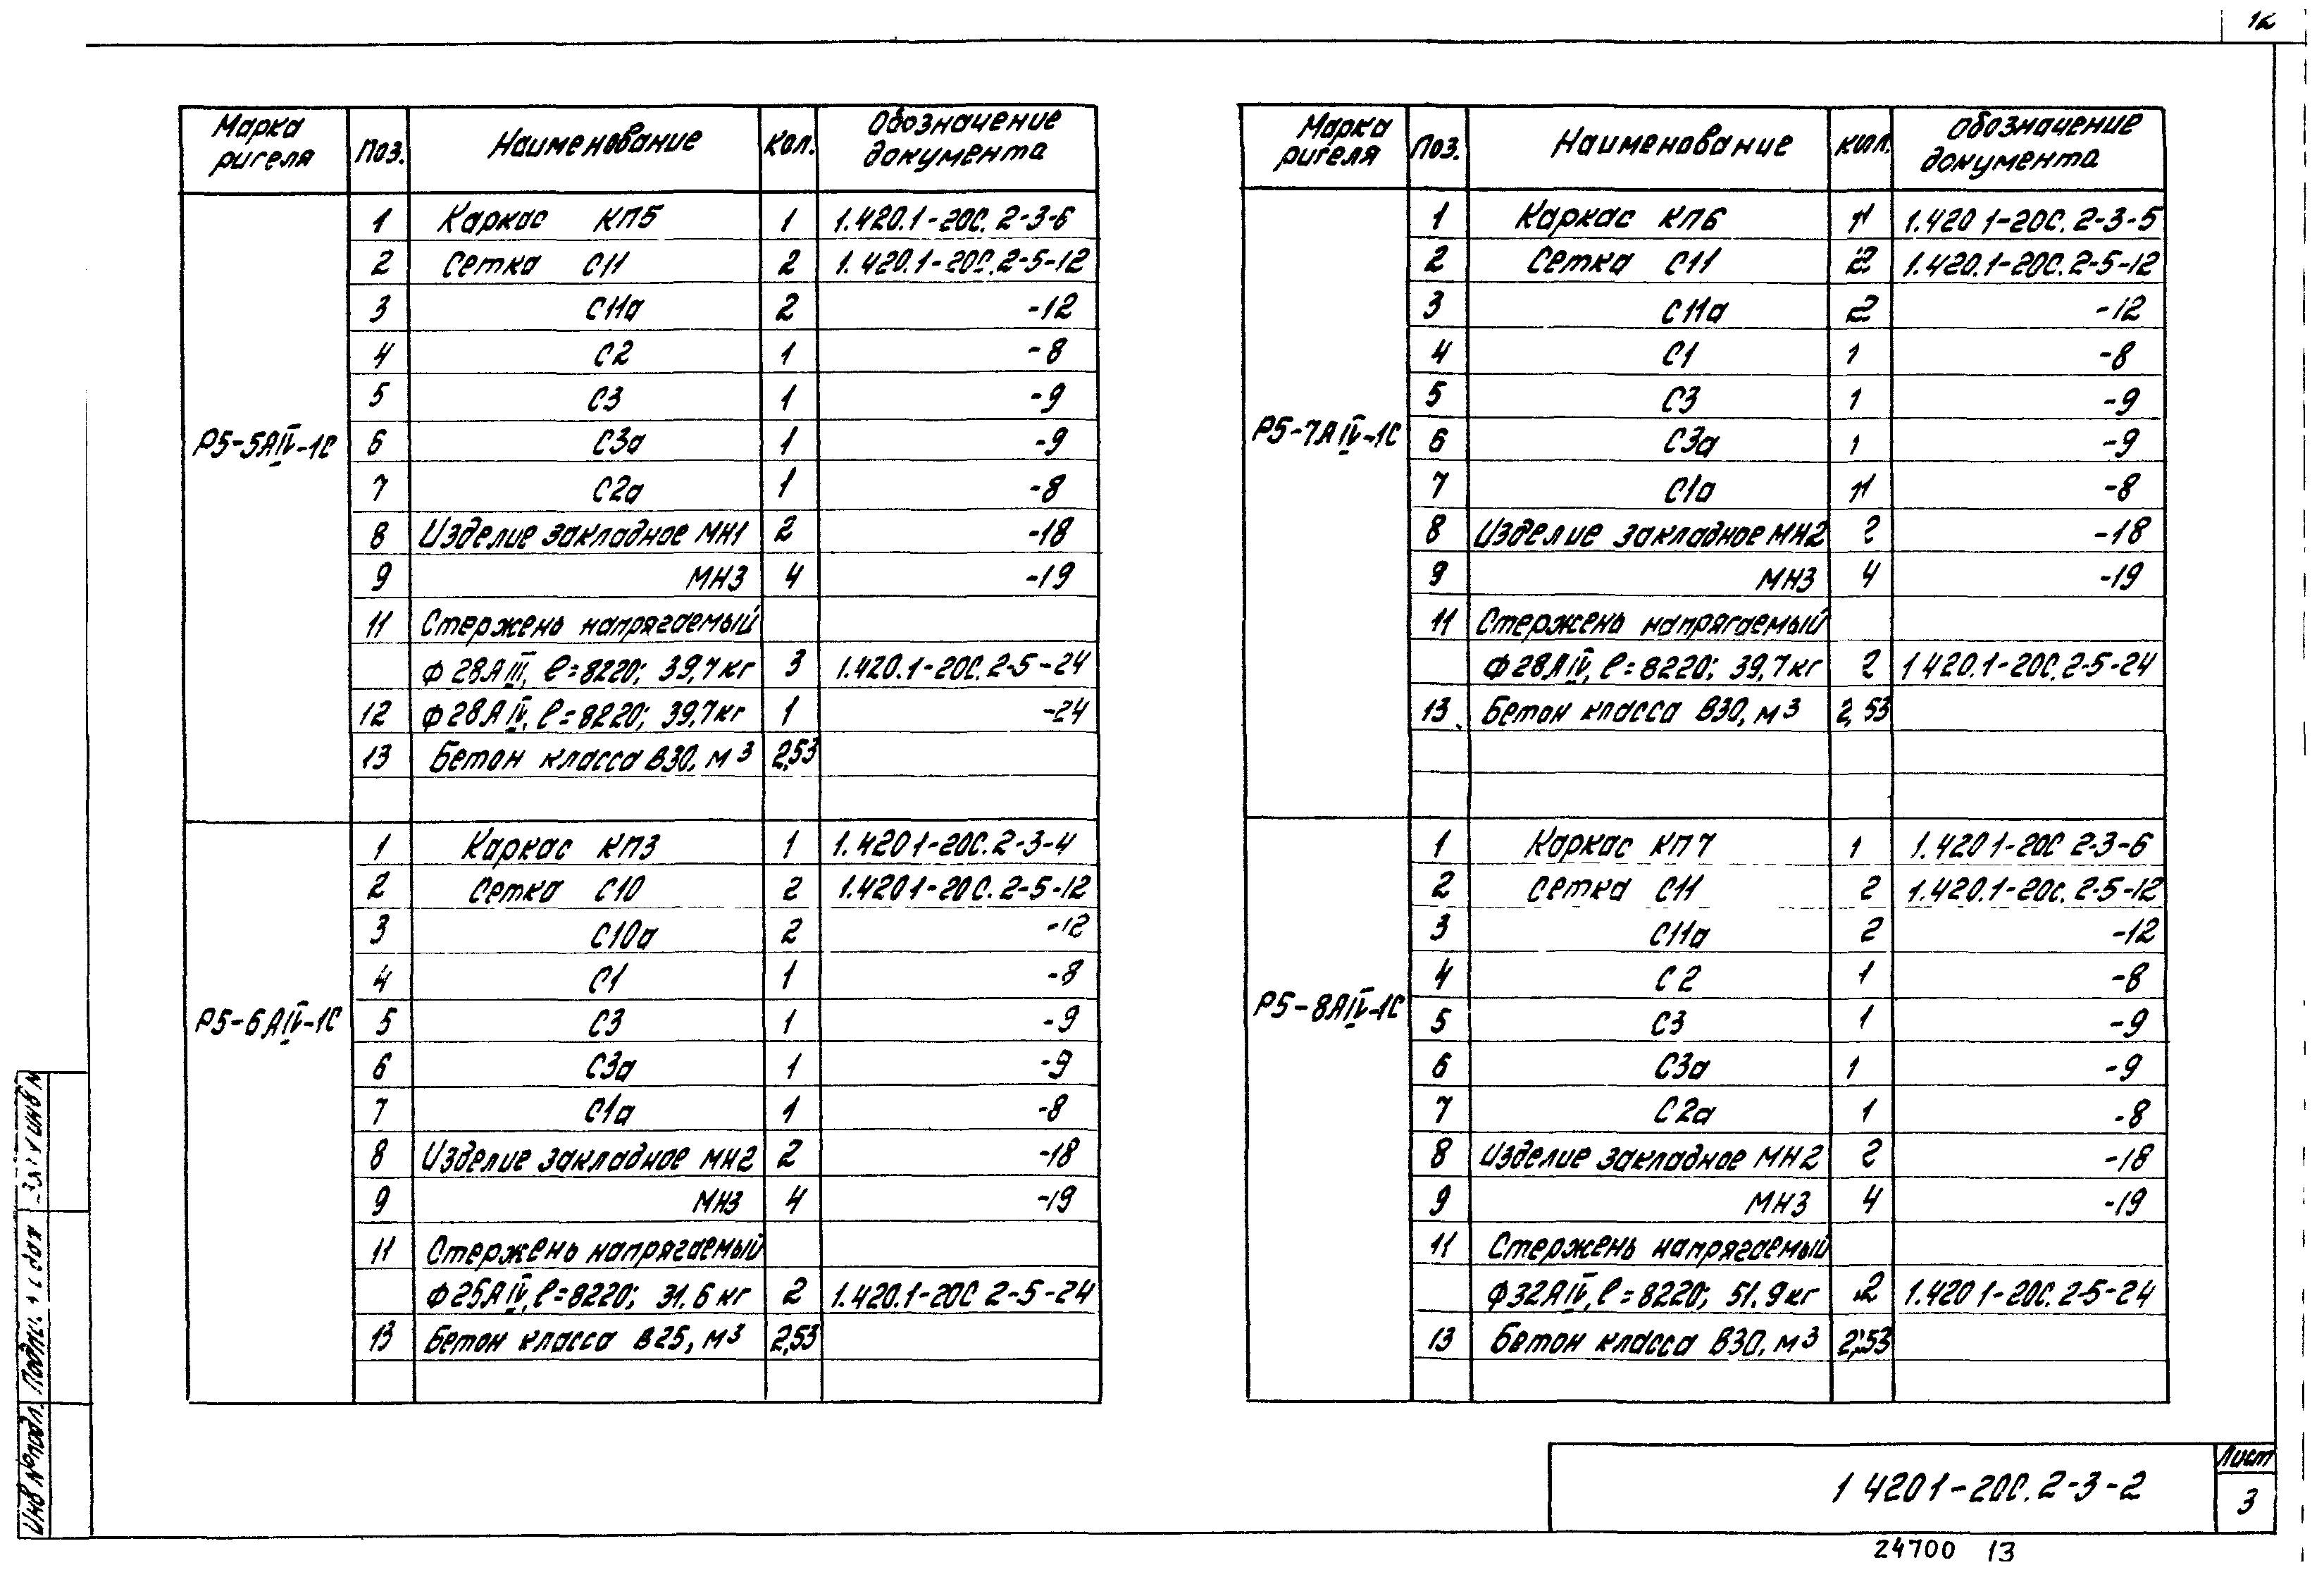 12
Марка ригеля Поз. Наименование Кол. Обозначение документа
Р5-5АIV-1С
1 Каркас КП5 1 1.420.1-20С.2-3-6
2 Сетка С11 2 1.420.1-20С.2-5-12
3 С11а 2 -12
4 С2 1 -8
5 С3 1 -9
6 С3а 1 -9
7 С2а 1 -8
8 Изделие закладное МН1 2 -18
9 МН3 4 -19
11 Стержень напрягаемый
Ф28АIII, ℓ=8220; 39,7кг 3 1.420.1-20С.2-5-24
12 Ф28АIV, ℓ=8220; 39,7кг 1 -24
13 Бетон класса В30, м³ 2,53
Р5-6АIV-1С
1 Каркас КП3 1 1.420 1-20С.2-3-4
2 Сетка С10 2 1.420 1-20С.2-5-12
3 С10а 2 -12
4 С1 1 -8
5 С3 1 -9
6 С3а 1 -9
7 С1а 1 -8
8 Изделие закладное МН2 2 -18
9 МН3 4 -19
11 Стержень напрягаемый
Ф25АIV, ℓ=8220; 31.6 кг 2 1.420.1-20С 2-5-24
13 Бетон класса В25, м³ 2,53
Марка ригеля Поз. Наименование Кол. Обозначение документа
Р5-7АIV-1С
1 Каркас КП6 1 1.420 1-20С.2-3-5
2 Сетка С11 2 1.420.1-20С.2-5-12
3 С11а 2 -12
4 С1 1 -8
5 С3 1 -9
6 С3а 1 -9
7 С1а 1 -8
8 Изделие закладное МН2 2 -18
9 МН3 4 -19
11 Стержень напрягаемый
Ф28АIV, ℓ=8220; 39,7кг 2 1 420.1-20С.2-5-24
13 Бетон класса В30, м³ 2,53
Р5-8АIV-1С
1 Каркас КП7 1 1.420 1-20С 2-3-6
2 Сетка С11 2 1.420.1-20С.2-5-12
3 С11а 2 -12
4 С2 1 -8
5 С3 1 -9
6 С3а 1 -9
7 С2а 1 -8
8 Изделие закладное МН2 2 -18
9 МН3 4 -19
11 Стержень напрягаемый
Ф32АIV, ℓ=8220; 51.9кг 2 1.420 1-20С.2-5-24
13 Бетон класса В30, м³ 2,53
Инв № подл.
1 420 1-20С.2-3-2
Лист
3
24700 13